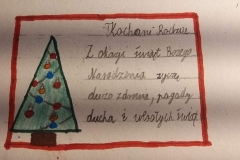 Kochani Rodzice
Z okazji świąt Bożego
Narodzenia życzę
dużo zdrowia, pogody
ducha i wesołych świąt